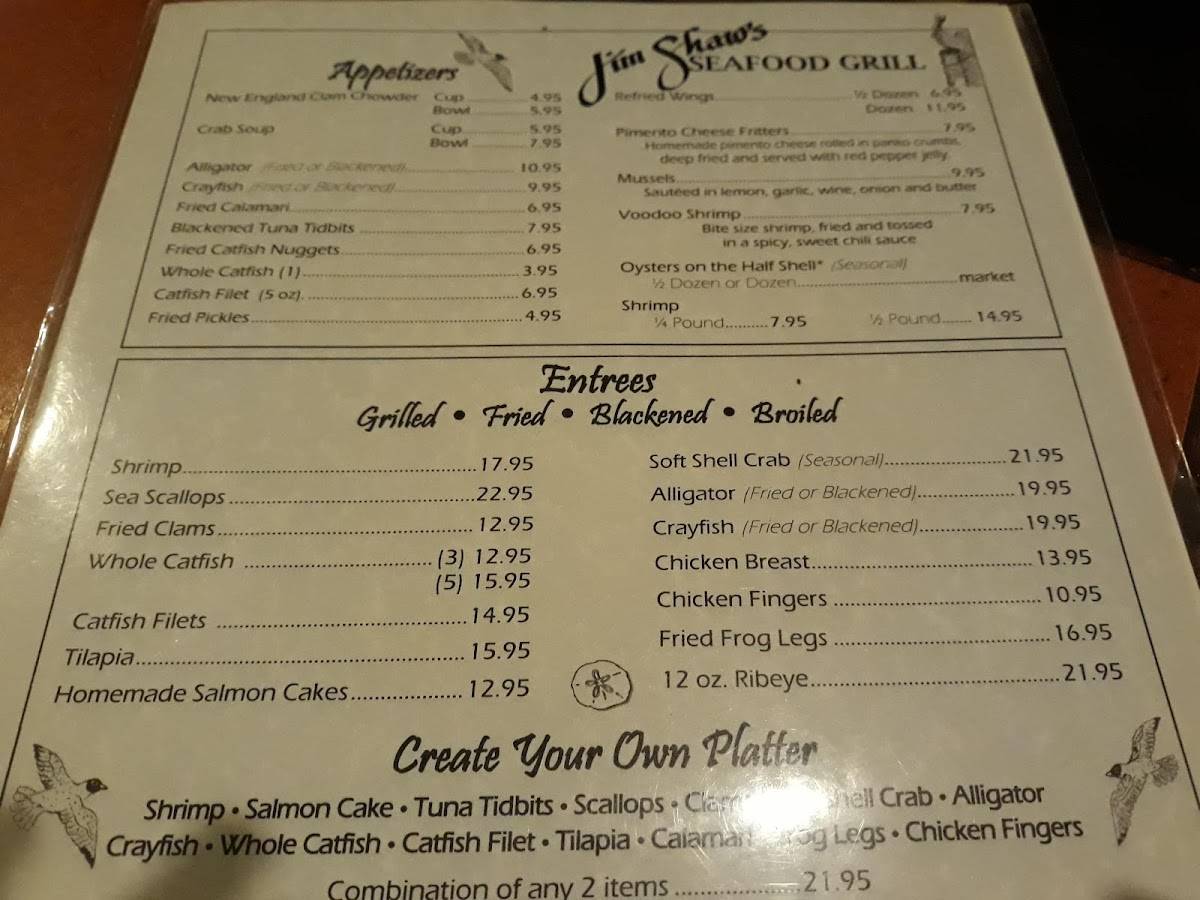 Jim Shaw's
SEAFOOD GRILL
Appetizers
New England Clam Chowder Cup 4.95
Bowl 5.95
Crab Soup Cup 5.95
Bowl 7.95
Alligator (Fried or Blackened) 10.95
Crayfish (Fried or Blackened) 9.95
Fried Calamari 6.95
Blackened Tuna Tidbits 7.95
Fried Catfish Nuggets 6.95
Whole Catfish (1) 3.95
Catfish Filet (5 oz). 6.95
Fried Pickles 4.95
Refried Wings ½ Dozen 6.95
Dozen 11.95
Pimento Cheese Fritters 7.95
Homemade pimento cheese rolled in panko crumbs,
deep fried and served with red pepper jelly
Mussels 9.95
Sautéed in lemon, garlic, wine, onion and butter
Voodoo Shrimp 7.95
Bite size shrimp, fried and tossed
in a spicy, sweet chili sauce
Oysters on the Half Shell* (Seasonal)
½ Dozen or Dozen market
Shrimp
¼ Pound 7.95 ½ Pound 14.95
Entrees
Grilled • Fried • Blackened • Broiled
Shrimp 17.95
Sea Scallops 22.95
Fried Clams 12.95
Whole Catfish (3) 12.95
(5) 15.95
Catfish Filets 14.95
Tilapia 15.95
Homemade Salmon Cakes 12.95
Soft Shell Crab (Seasonal) 21.95
Alligator (Fried or Blackened) 19.95
Crayfish (Fried or Blackened) 19.95
Chicken Breast 13.95
Chicken Fingers 10.95
Fried Frog Legs 16.95
12 oz. Ribeye 21.95
Create Your Own Platter
Shrimp • Salmon Cake • Tuna Tidbits • Scallops • Crab • Alligator
Crayfish • Whole Catfish • Catfish Filet • Tilapia • Calamari Legs • Chicken Fingers
Combination of any 2 items 21.95